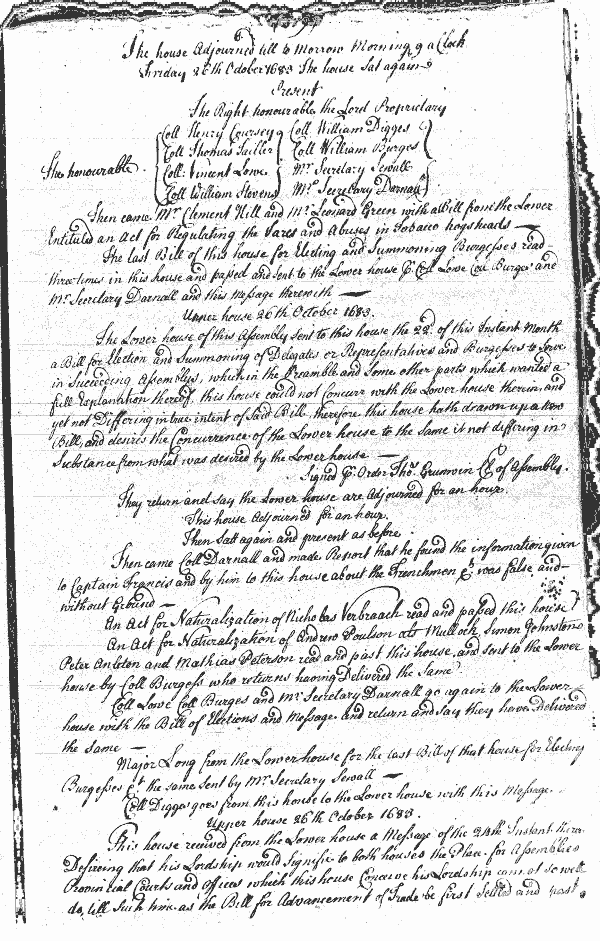 The house Adjourned till to Morrow Morning 9 a Clock
Friday 26th October 1683 The house Sat again
Present
The Right honourable the Lord Proprietary
Coll Henry Coursey Coll William Digges
Coll Thomas Tailler Coll William Burges
The honourable Coll: Vincent Lowe Mr Secretary Sewall
Coll William Stevens Mr Secretary Darnall
Then came Mr Clement Hill and Mr Leonard Green with a Bill from the Lower
Entituled an Act for Regulating the Tares and Abuses in Tobacco hogsheads
The last Bill of this house for Electing and Summoning Burgesses read
three times in this house and passed and sent to the Lower house P Coll Lowe Coll Burges and
Mr Secretary Darnall and this Message therewith
Upper house 26th October 1683.
The Lower house of this Assembly sent to this house the 22d of this Instant Month
a Bill for Election and Summoning of Delegates or Representatives and Burgesses to Serve
in Succeeding Assemblys, which in the Preamble and Some other parts which wanted a
full Explanation thereof, this house could not Concurr with the Lower house therein, and
yet not Differing in true intent of Said Bill, therefore this house hath drawn up a New
Bill, and desires the Concurrence of the Lower house to the Same it not differing in
Substance from what was desired by the Lower house
Signed P Order Thos Grunwin Cl of Assembly.
They return and say the Lower house are Adjourned for an hour.
This house Adjourned for an hour.
Then Satt again and present as before
Then came Coll Darnall and made Report that he found the information given
to Captain Francis and by him to this house about the Frenchmen &c was false and
without Ground
An Act for Naturalization of Nicholas Verbraack read and passed this house
An Act for Naturalization of Andrew Poulson als Mullock, Simon Johnston
Peter Anleton and Mathias Peterson read and past this house, and sent to the Lower
house by Coll Burgess who returns having Delivered the Same
Coll Lowe Coll Burges and Mr Secretary Darnall go again to the Lower
house with the Bill of Elections and Message and return and say they have Delivered
the same
Major Long from the Lower house for the last Bill of that house for Electing
Burgesses &c the same sent by Mr Secretary Sewall
Coll Digges goes from this house to the Lower house with this Message.
Upper house 26th October 1683.
This house received from the Lower house a Message of the 24th Instant
Desireing that his Lordship would Signifie to both houses the Place for Assemblies
Provincial Courts and offices which this house Conceive his Lordship cannot so well
do, till Such time as the Bill for Advancement of Trade be first Setled and past